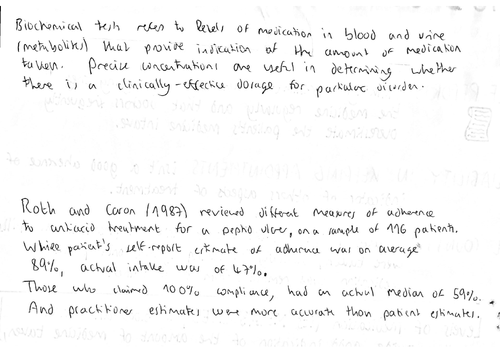 Biochemical tests refer to levels of medication in blood and urine
(metabolites) that provide indication of the amount of medication
taken. Precise concentrations are useful in determining whether
there is a clinically-effective dosage for particular disorder.
Roth and Caron (1987) reviewed different measures of adherence
to antiacid treatment for a peptic ulcer, on a sample of 116 patients.
While patient's self-report estimate of adherence was on average
89%, actual intake was of 47%.
Those who claimed 100% compliance, had an actual median of 59%.
And practitioner estimates were more accurate than patient estimates.